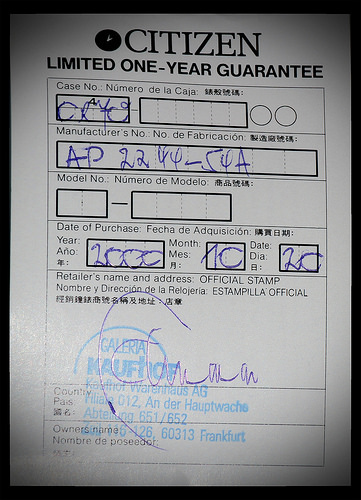 CITIZEN
LIMITED ONE-YEAR GUARANTEE
Case No.: Número de la Caja: 錶殼號碼:
Manufacturer's No.: No. de Fabricación: 製造廠號碼:
AP 2244-54A
Model No.: Número de Modelo: 商品號碼:
Date of Purchase: Fecha de Adquisición: 購買日期:
Year: Month: Date:
Año: 2000 Mes: 10 Dia: 20
年: 月: 日:
Retailer's name and address: OFFICIAL STAMP
Nombre y Dirección de la Relojería: ESTAMPILLA OFICIAL
經銷鐘錶商號名稱及地址:店章
GALERIA
KAUFHOF
Kaufhof Warenhaus AG
Country
Filiale 012, An der Hauptwache
País
Abteilung 651/652
國名:
126, 60313 Frankfurt
Owners name:
Nombre de poseedor: